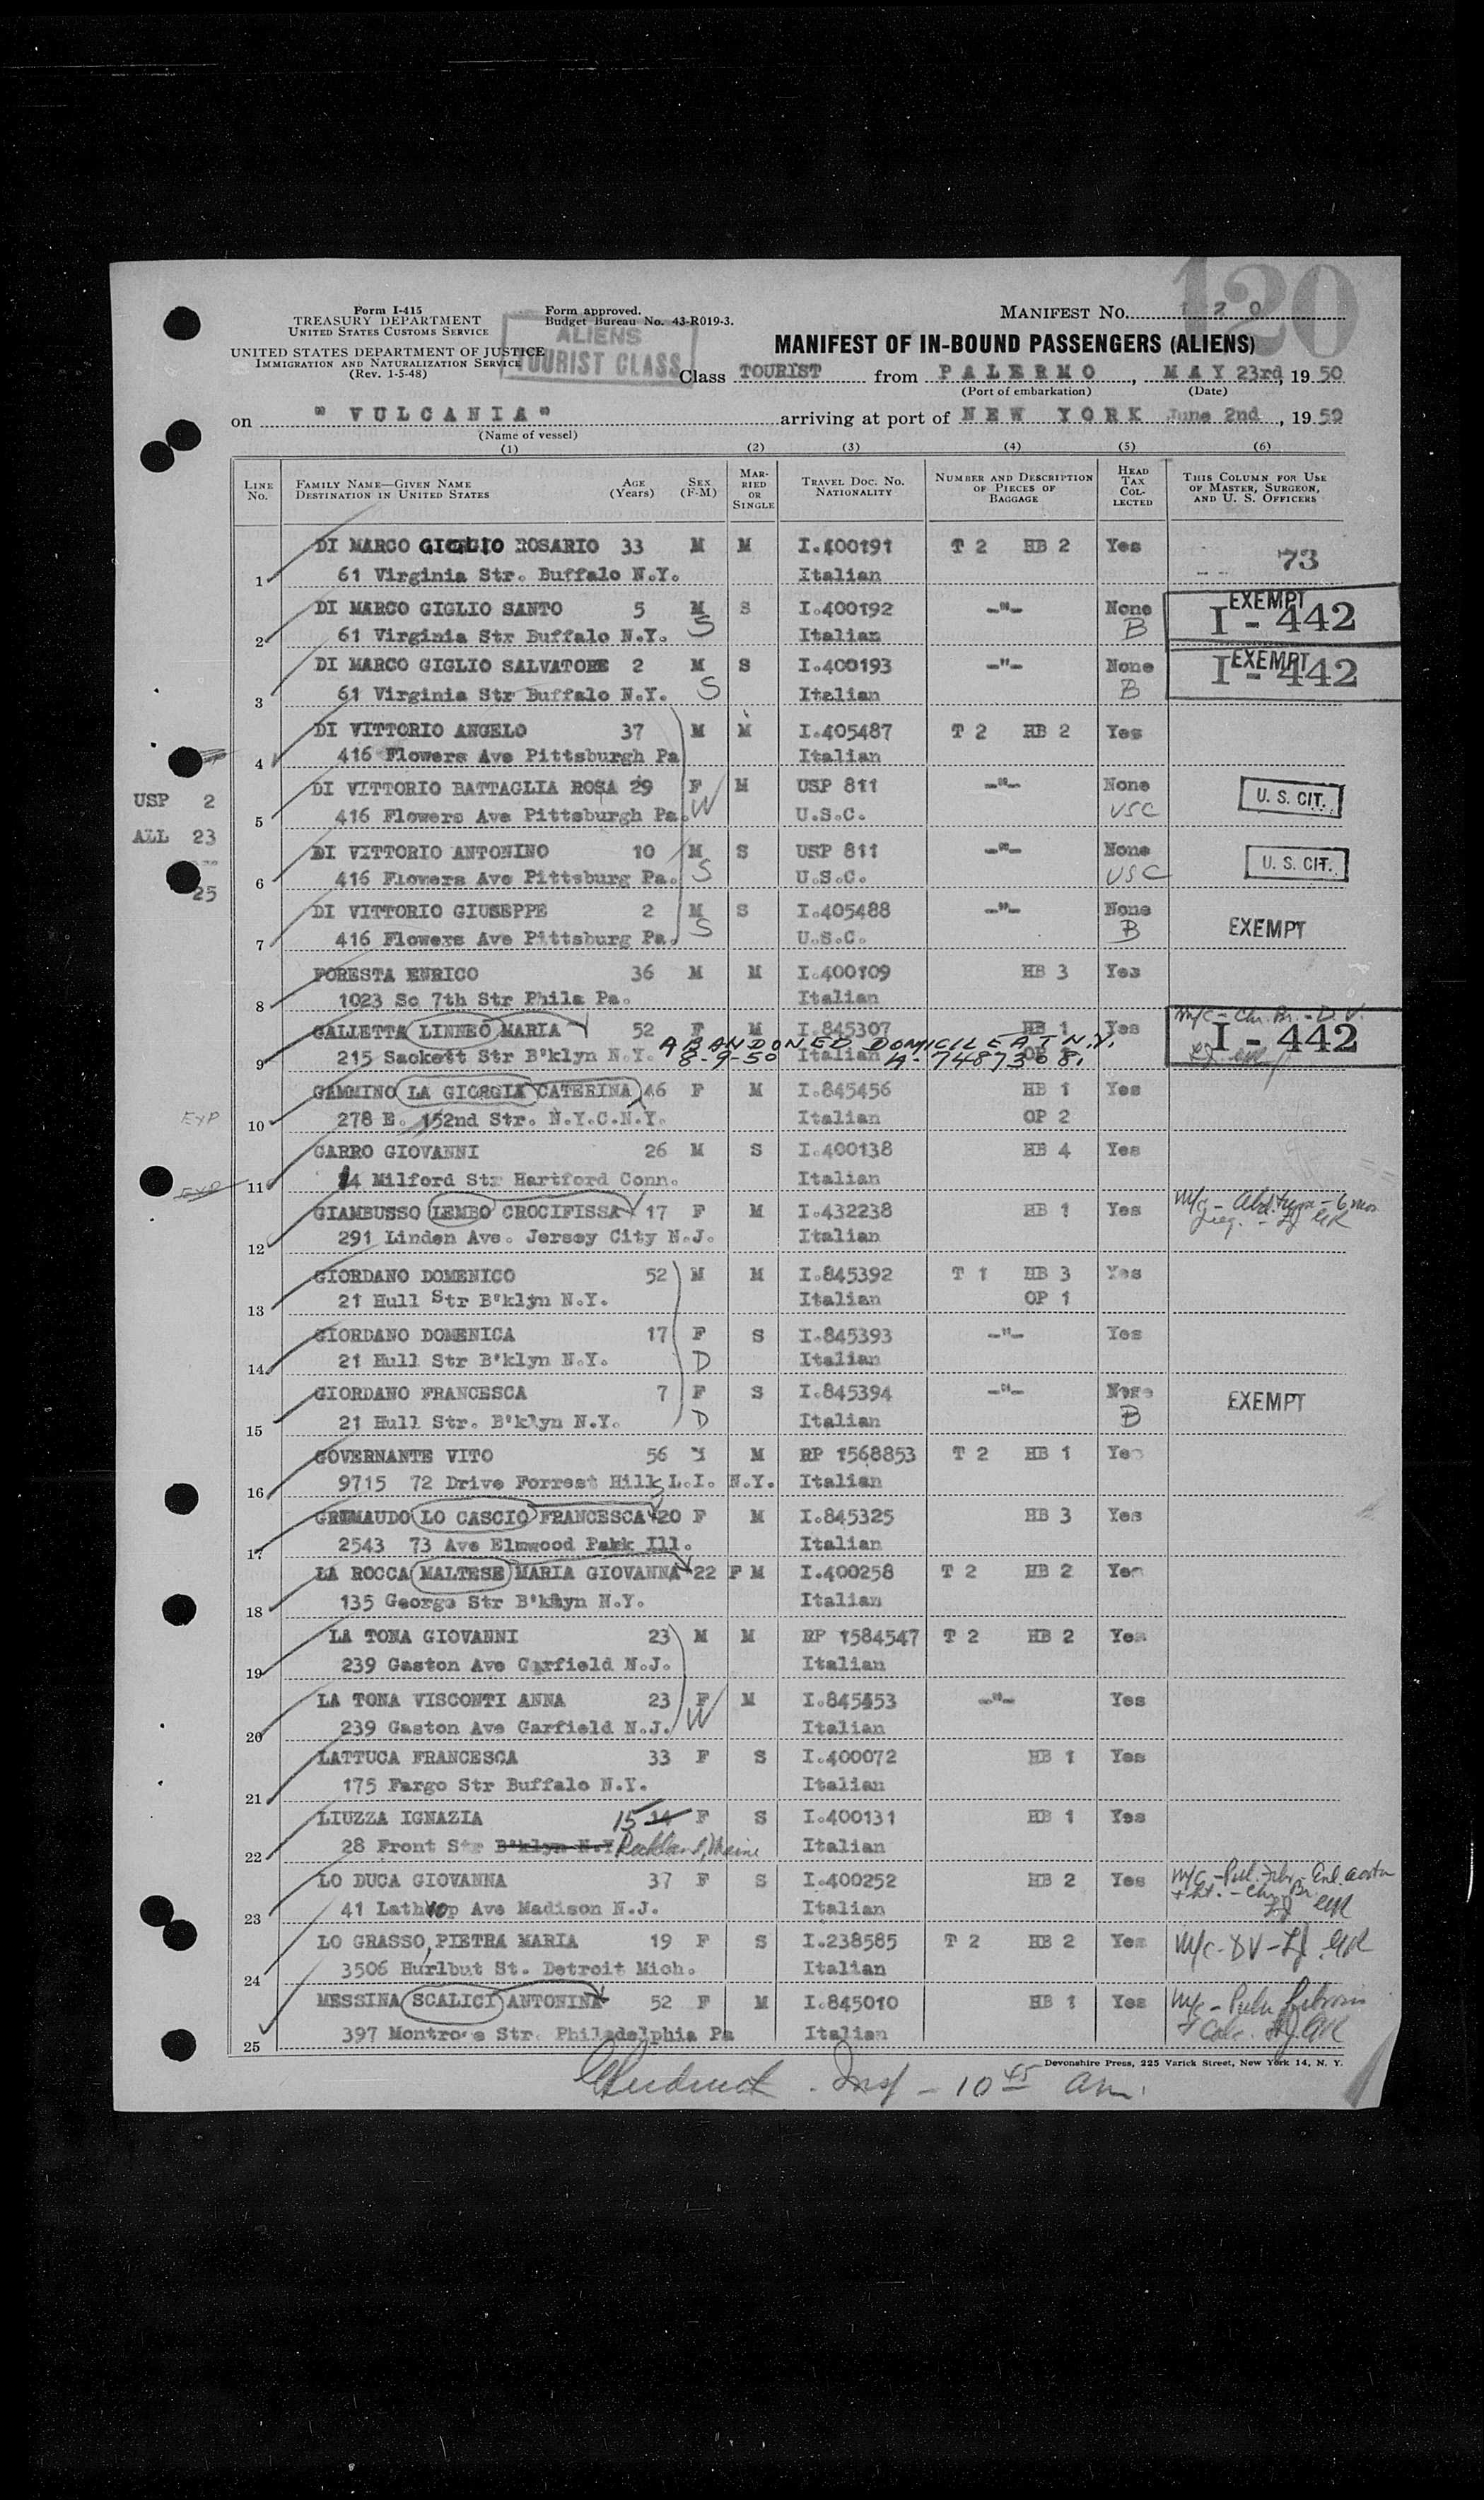 120
Form I-415
TREASURY DEPARTMENT
UNITED STATES CUSTOMS SERVICE
UNITED STATES DEPARTMENT OF JUSTICE
IMMIGRATION AND NATURALIZATION SERVICE
(Rev. 1-5-48)
Form approved.
Budget Bureau No. 43-R019-3.
ALIENS
TOURIST CLASS
MANIFEST NO. 1 2 0
MANIFEST OF IN-BOUND PASSENGERS (ALIENS)
Class TOURIST from PALERMO, MAY 23rd, 1950
(Port of embarkation) (Date)
on "VULCANIA" arriving at port of NEW YORK June 2nd, 1950
(Name of vessel)
(1) (2) (3) (4) (5) (6)
LINE No. FAMILY NAME—GIVEN NAME DESTINATION IN UNITED STATES AGE (Years) SEX (F-M) MARRIED OR SINGLE TRAVEL DOC. NO. NATIONALITY NUMBER AND DESCRIPTION OF PIECES OF BAGGAGE HEAD TAX COLLECTED THIS COLUMN FOR USE OF MASTER, SURGEON, AND U. S. OFFICERS
DI MARCO GIGLIO ROSARIO 33 M M I.400191 T 2 HB 2 Yes 73
1 61 Virginia Str. Buffalo N.Y. Italian
DI MARCO GIGLIO SANTO 5 M S I.400192 -"- None EXEMPT I-442
2 61 Virginia Str Buffalo N.Y. S Italian B
DI MARCO GIGLIO SALVATORE 2 M S I.400193 -"- None EXEMPT I-442
3 61 Virginia Str Buffalo N.Y. S Italian B
DI VITTORIO ANGELO 37 M M I.405487 T 2 HB 2 Yes
4 416 Flowers Ave Pittsburgh Pa Italian
DI VITTORIO BATTAGLIA ROSA 29 F M USP 811 -"- None U. S. CIT.
USP 2
5 416 Flowers Ave Pittsburgh Pa. W U.S.C. USC
ALL 23
DI VITTORIO ANTONINO 10 M S USP 811 -"- None U. S. CIT.
6 416 Flowers Ave Pittsburg Pa. S U.S.C. USC
25
DI VITTORIO GIUSEPPE 2 M S I.405488 -"- None EXEMPT
7 416 Flowers Ave Pittsburg Pa. S U.S.C. B
FORESTA ENRICO 36 M M I.400109 HB 3 Yes
8 1023 So 7th Str Phila Pa. Italian
GALLETTA LINNEO MARIA 52 F M I.845307 HB 1 Yes M/C - Chr. Br. - D.V. I-442
ABANDONED DOMICILE AT N.Y.
9 215 Sackett Str B'klyn N.Y. 8-9-50 Italian A-7487308
GAMMINO LA GIORGIA CATERINA 46 F M I.845456 HB 1 Yes
EXP
10 278 E. 152nd Str. N.Y.C.N.Y. Italian OP 2
GARRO GIOVANNI 26 M S I.400138 HB 4 Yes
EXP
11 14 Milford Str Hartford Conn. Italian
GIAMBUSSO LEMBO CROCIFISSA 17 F M I.432238 HB 1 Yes M/C - 6 mos
12 291 Linden Ave. Jersey City N.J. Italian
GIORDANO DOMENICO 52 M M I.845392 T 1 HB 3 Yes
13 21 Hull Str B'klyn N.Y. Italian OP 1
GIORDANO DOMENICA 17 F S I.845393 -"- Yes
14 21 Hull Str B'klyn N.Y. D Italian
GIORDANO FRANCESCA 7 F S I.845394 -"- None EXEMPT
15 21 Hull Str. B'klyn N.Y. D Italian B
GOVERNANTE VITO 56 M RP 1568853 T 2 HB 1 Yes
16 9715 72 Drive Forrest Hills L.I. N.Y. Italian
GRIMAUDO LO CASCIO FRANCESCA 20 F M I.845325 HB 3 Yes
17 2543 73 Ave Elmwood Park Ill. Italian
LA ROCCA MALTESE MARIA GIOVANNA 22 F M I.400258 T 2 HB 2 Yes
18 135 George Str B'klyn N.Y. Italian
LA TONA GIOVANNI 23 M M RP 1584547 T 2 HB 2 Yes
19 239 Gaston Ave Garfield N.J. Italian
LA TONA VISCONTI ANNA 23 F M I.845453 -"- Yes
20 239 Gaston Ave Garfield N.J. W Italian
LATTUCA FRANCESCA 33 F S I.400072 HB 1 Yes
21 175 Fargo Str Buffalo N.Y. Italian
LIUZZA IGNAZIA 15 14 F S I.400131 HB 1 Yes
22 28 Front Str B'klyn N.Y Rockland, Maine Italian
LO DUCA GIOVANNA 37 F S I.400252 HB 2 Yes M/C - Pul. Fibr. - Enl. aorta
23 41 Lathrop Ave Madison N.J. Italian
LO GRASSO, PIETRA MARIA 19 F S I.238585 T 2 HB 2 Yes M/C - DV -
24 3506 Hurlbut St. Detroit Mich. Italian
MESSINA SCALICI ANTONINA 52 F M I.845010 HB 1 Yes M/C - Pulm Fibrosis
25 397 Montrose Str. Philadelphia Pa Italian
Devonshire Press, 225 Varick Street, New York 14, N. Y.
Insp - 10 45 am.